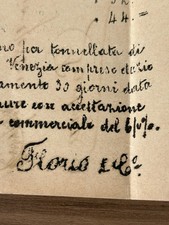 44 =
no per tonnellata di
Venezia compreso dazio
amente 30 giorni data
pure con accettazione
commerciale del 6%.
Florio & Co.